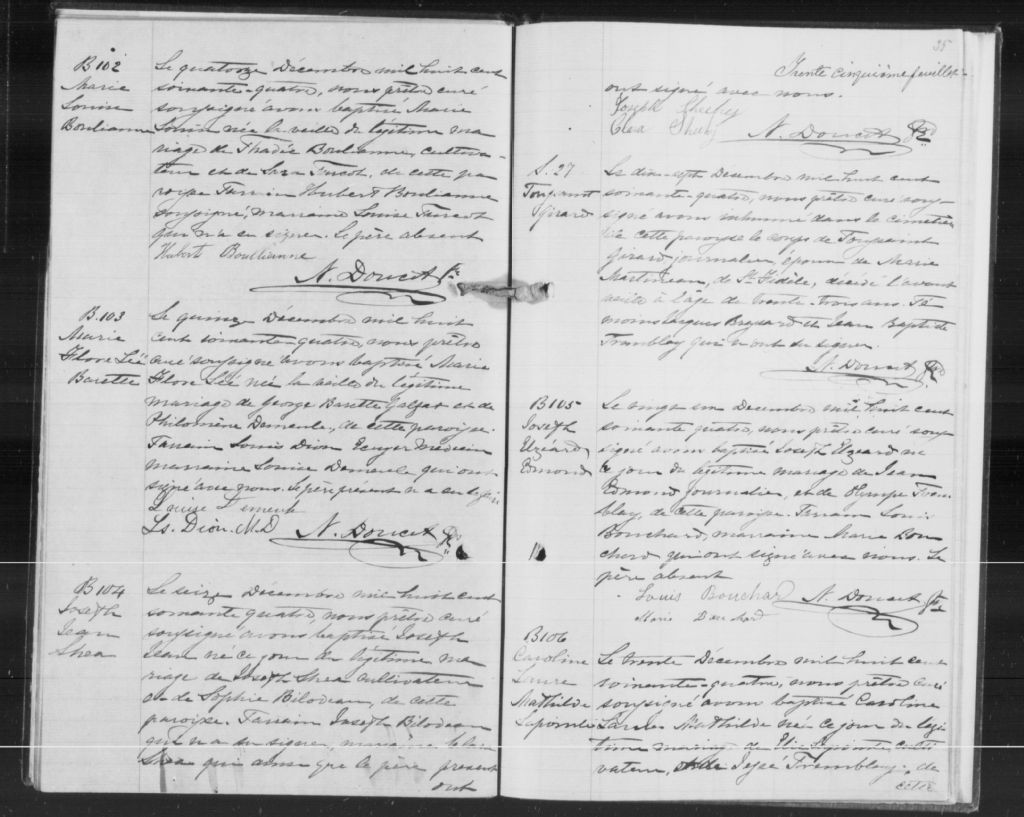 B102
Marie
Louise
Boulianne
Le quatorze Décembre mil huit cent
soixante-quatre, nous prêtre curé
soussigné avons baptisé Marie
Louise née la veille du légitime ma
riage de Thadée Boulianne, cultiva-
teur et de Turcot, de cette pa
roisse Parrain Hubert Boulianne
soussigné, marraine Louise Turcot
qui n'a su signer. Le père absent
Hubert Boullianne
N. Doucet Ptre
B.103
Marie
Flore Léa
Barette
Le quinze Décembre mil huit
cent soixante-quatre, nous prêtre
curé soussigné avons baptisé Marie
Flore Léa née la veille du légitime
mariage de George Barette et de
Philomène Demeule, de cette paroisse.
Parrain Louis Dion Ecuyer Médecin
marraine Louise Demeule qui ont
signé avec nous. Le père présent n'a su signer
Louise Demeule
Ls. Dion. M.D N. Doucet Ptre
B104
Joseph
Jean
Shea
Le seize Décembre mil huit cent
soixante quatre, nous prêtre curé
soussigné avons baptisé Joseph
Jean né ce jour du légitime ma
riage de Joseph Shea cultivateur
et de Sophie Bilodeau, de cette
paroisse. Parrain Joseph Bilodeau
qui n'a su signer, marraine
Shea qui ainsi que le père présent
ont
35
Trente cinquième feuillet
ont signé avec nous.
Joseph
N. Doucet Ptre
S. 27
Toussaint
Girard
Le dix sept Décembre mil huit cent
soixante-quatre, nous prêtre curé sous-
signé avons inhumé dans le cimetière
de cette paroisse le corps de Toussaint
Girard journalier, époux de Marie
Martineau, de St. Fidèle, décédé l'avant
veille à l'age de trente-trois ans. Té
moins Jacques Brassard et Jean Baptiste
Tremblay qui n'ont su signer.
N. Doucet Ptre
B105
Joseph
Elzéard
Edmond
Le vingt un Décembre mil huit cent
soixante quatre, nous prêtre curé sous
signé avons baptisé Joseph Elzeard né
ce jour du légitime mariage de Jean
Edmond journalier, et de Olympe Trem-
blay, de cette paroisse. Parrain Louis
Bouchard, marraine Marie Bou
chard qui ont signé avec nous. Le
père absent
Louis Bouchard N. Doucet Ptre
Marie Bouchard
B106
Caroline
Laure
Mathilde
Lapointe
Le trente Décembre mil huit cent
soixante-quatre, nous prêtre curé
soussigné avons baptisé Caroline
Laure Mathilde née ce jour du légi
time mariage de Elie Lapointe, culti
vateur, de Tremblay, de
cette